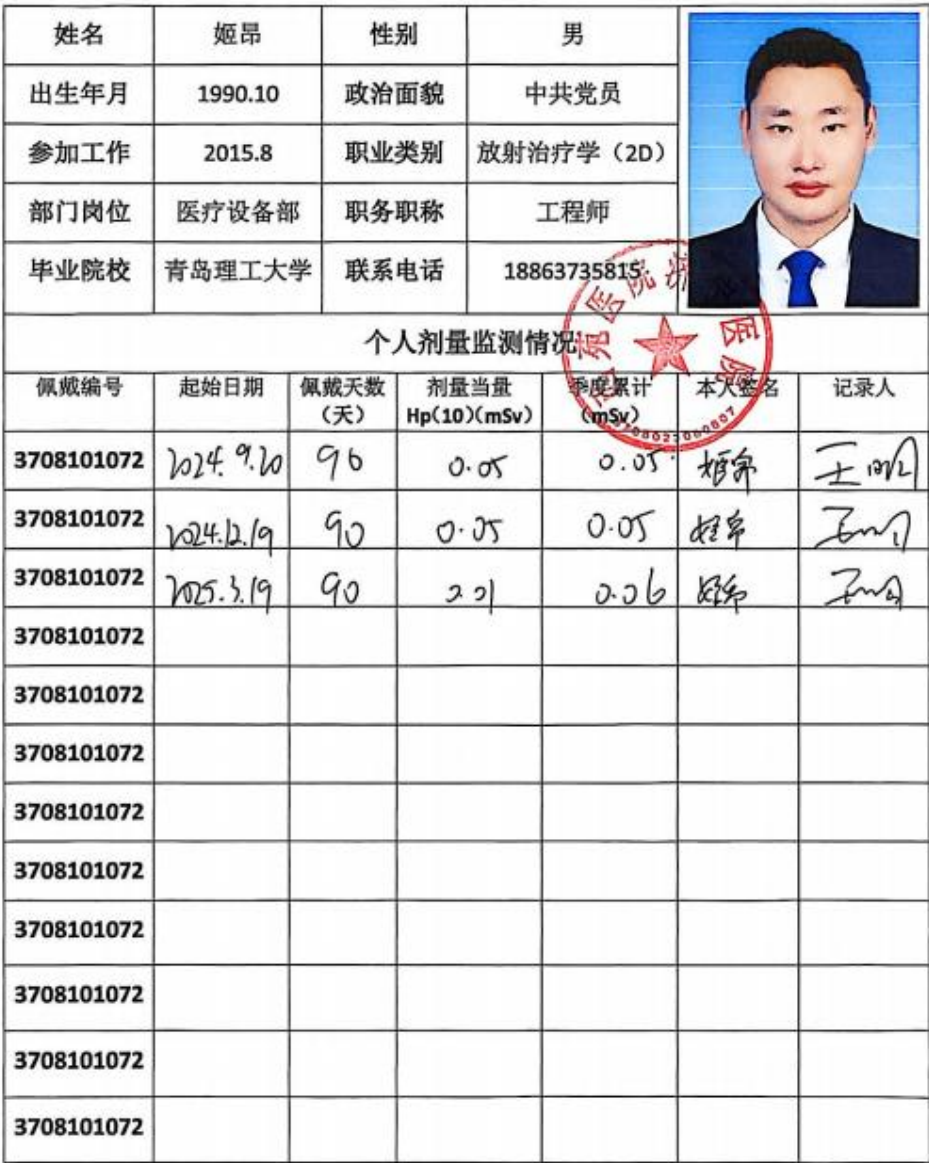 姓名 姬昂 性别 男
出生年月 1990.10 政治面貌 中共党员
参加工作 2015.8 职业类别 放射治疗学（2D）
部门岗位 医疗设备部 职务职称 工程师
毕业院校 青岛理工大学 联系电话 18863735815
个人剂量监测情况
佩戴编号 起始日期 佩戴天数（天） 剂量当量Hp(10)(mSv) 季度累计(mSv) 本人签名 记录人
3708101072 2024.9.20 90 0.05 0.05 姬昂 王明
3708101072 2024.12.19 90 0.05 0.05 姬昂
3708101072 2025.3.19 90 0.01 0.06 姬昂
3708101072
3708101072
3708101072
3708101072
3708101072
3708101072
3708101072
3708101072
3708101072